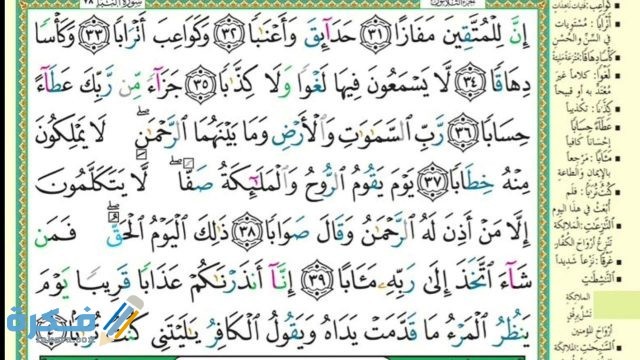 سورة النبإ ٧٨
الجزء الثلاثون
إِنَّ لِلْمُتَّقِينَ مَفَازًا ٣١ حَدَآئِقَ وَأَعْنَٰبًا ٣٢ وَكَوَاعِبَ أَتْرَابًا ٣٣ وَكَأْسًا
دِهَاقًا ٣٤ لَّا يَسْمَعُونَ فِيهَا لَغْوًا وَلَا كِذَّٰبًا ٣٥ جَزَآءً مِّن رَّبِّكَ عَطَآءً
حِسَابًا ٣٦ رَّبِّ ٱلسَّمَٰوَٰتِ وَٱلْأَرْضِ وَمَا بَيْنَهُمَا ٱلرَّحْمَٰنِ ۖ لَا يَمْلِكُونَ
مِنْهُ خِطَابًا ٣٧ يَوْمَ يَقُومُ ٱلرُّوحُ وَٱلْمَلَٰٓئِكَةُ صَفًّا ۖ لَّا يَتَكَلَّمُونَ
إِلَّا مَنْ أَذِنَ لَهُ ٱلرَّحْمَٰنُ وَقَالَ صَوَابًا ٣٨ ذَٰلِكَ ٱلْيَوْمُ ٱلْحَقُّ ۖ فَمَن
شَآءَ ٱتَّخَذَ إِلَىٰ رَبِّهِۦ مَـَٔابًا ٣٩ إِنَّآ أَنذَرْنَٰكُمْ عَذَابًا قَرِيبًا يَوْمَ
يَنظُرُ ٱلْمَرْءُ مَا قَدَّمَتْ يَدَاهُ وَيَقُولُ ٱلْكَافِرُ يَٰلَيْتَنِى كُنتُ تُرَٰبًا
كَوَاعِبَ: فتيات ناهدات
أَتْرَابًا: مستويات
في السن والحسن
كَأْسًا دِهَاقًا: مترعة مليئة
لَغْوًا: كلاما غير
معتد به أو قبيحا
كِذَّابًا: تكذيبا
عَطَاءً حِسَابًا:
إحسانا كافيا
مَآبًا: مرجعا
بالإيمان والطاعة
كُنتُ تُرَابًا: فلم
أبعث في هذا اليوم
النَّازِعَاتِ: الملائكة
تنزع أرواح الكفار
غَرْقًا: نزعا شديدا
النَّاشِطَاتِ
الملائكة
تسل برفق
أرواح المؤمنين
السَّابِحَاتِ: الملائكة
فكرة